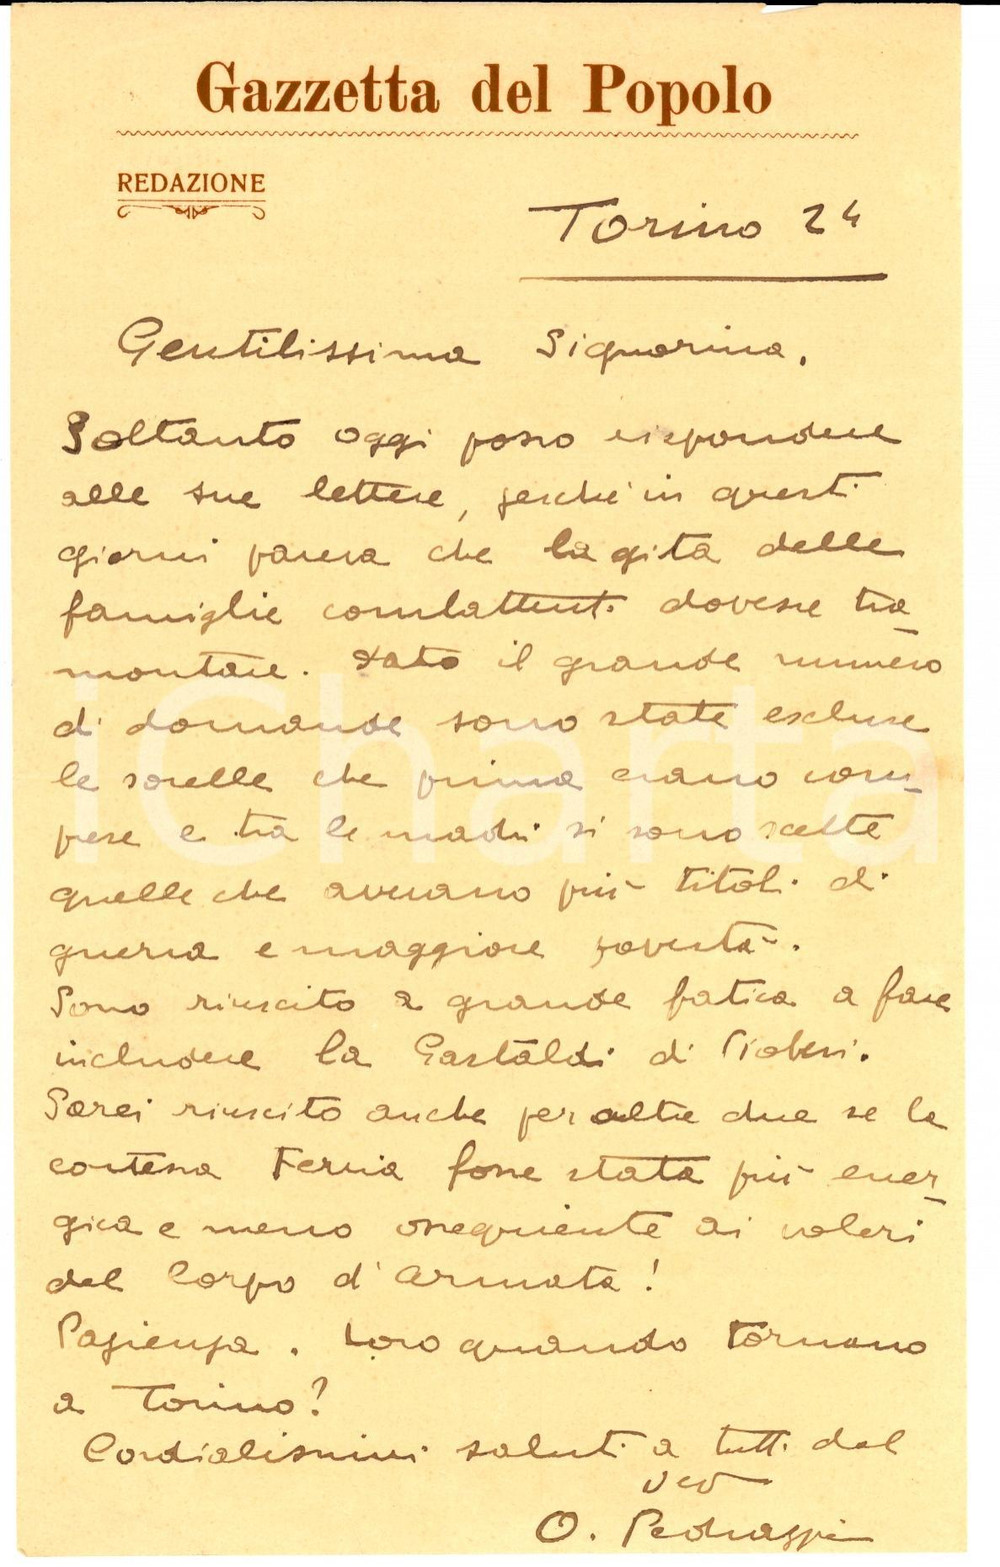 Gazzetta del Popolo
REDAZIONE
Torino 24
Gentilissima Signorina.
Soltanto oggi posso rispondere
alle sue lettere, perché in questi
giorni pareva che la gita delle
famiglie combattenti dovesse tra-
montare. Dato il grande numero
di domande sono state escluse
le sorelle che prima erano com-
prese e tra le madri si sono scelte
quelle che avevano più titoli di
guerra e maggiore povertà.
Sono riuscito a grande fatica a fare
includere la Gastaldi di Piobesi.
Sarei riuscito anche per altre due se la
contessa Ferria fosse stata più ener-
gica e meno ossequiente ai voleri
del Corpo d'Armata!
Pazienza. Loro quando tornano
a Torino?
Cordialissimi saluti a tutti dal
suo
O. Pedrazzi
iCharta